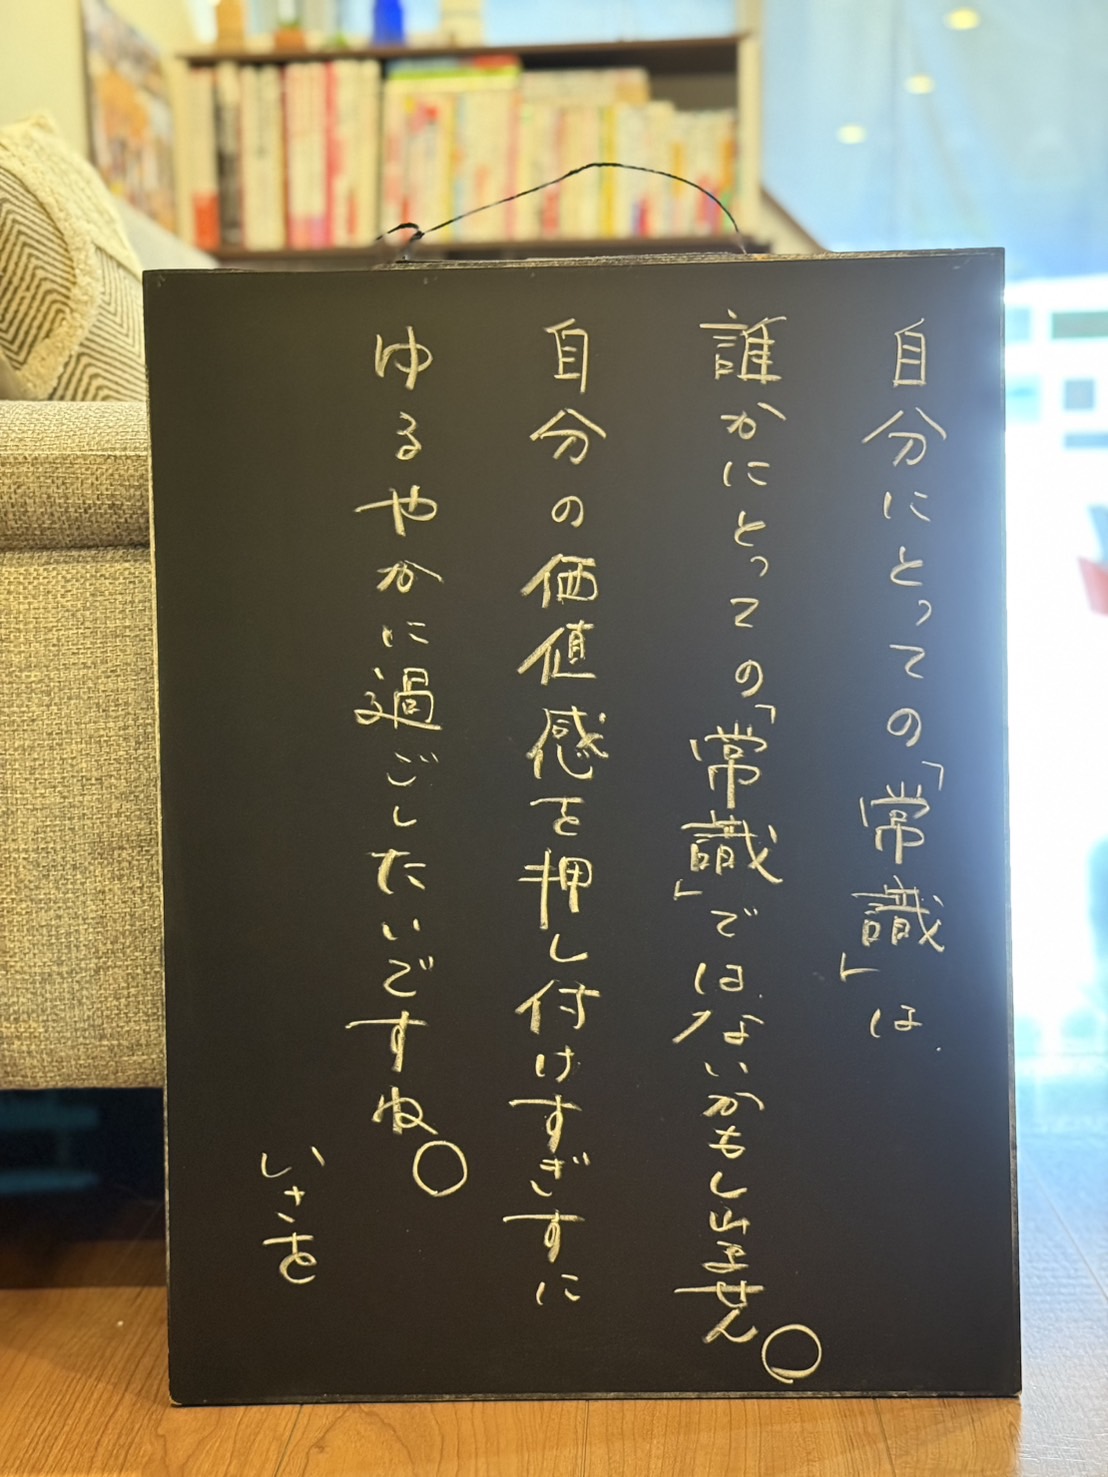 自分にとっての「常識」は
誰かにとっての「常識」ではないかもしれません。
自分の価値感を押し付けすぎすに
ゆるやかに過ごしたいですね。
いさを